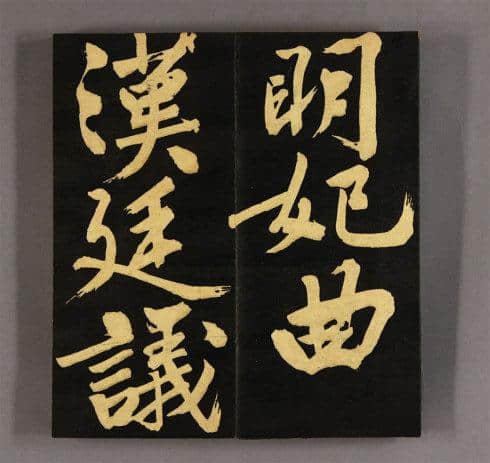 明妃曲
漢廷議